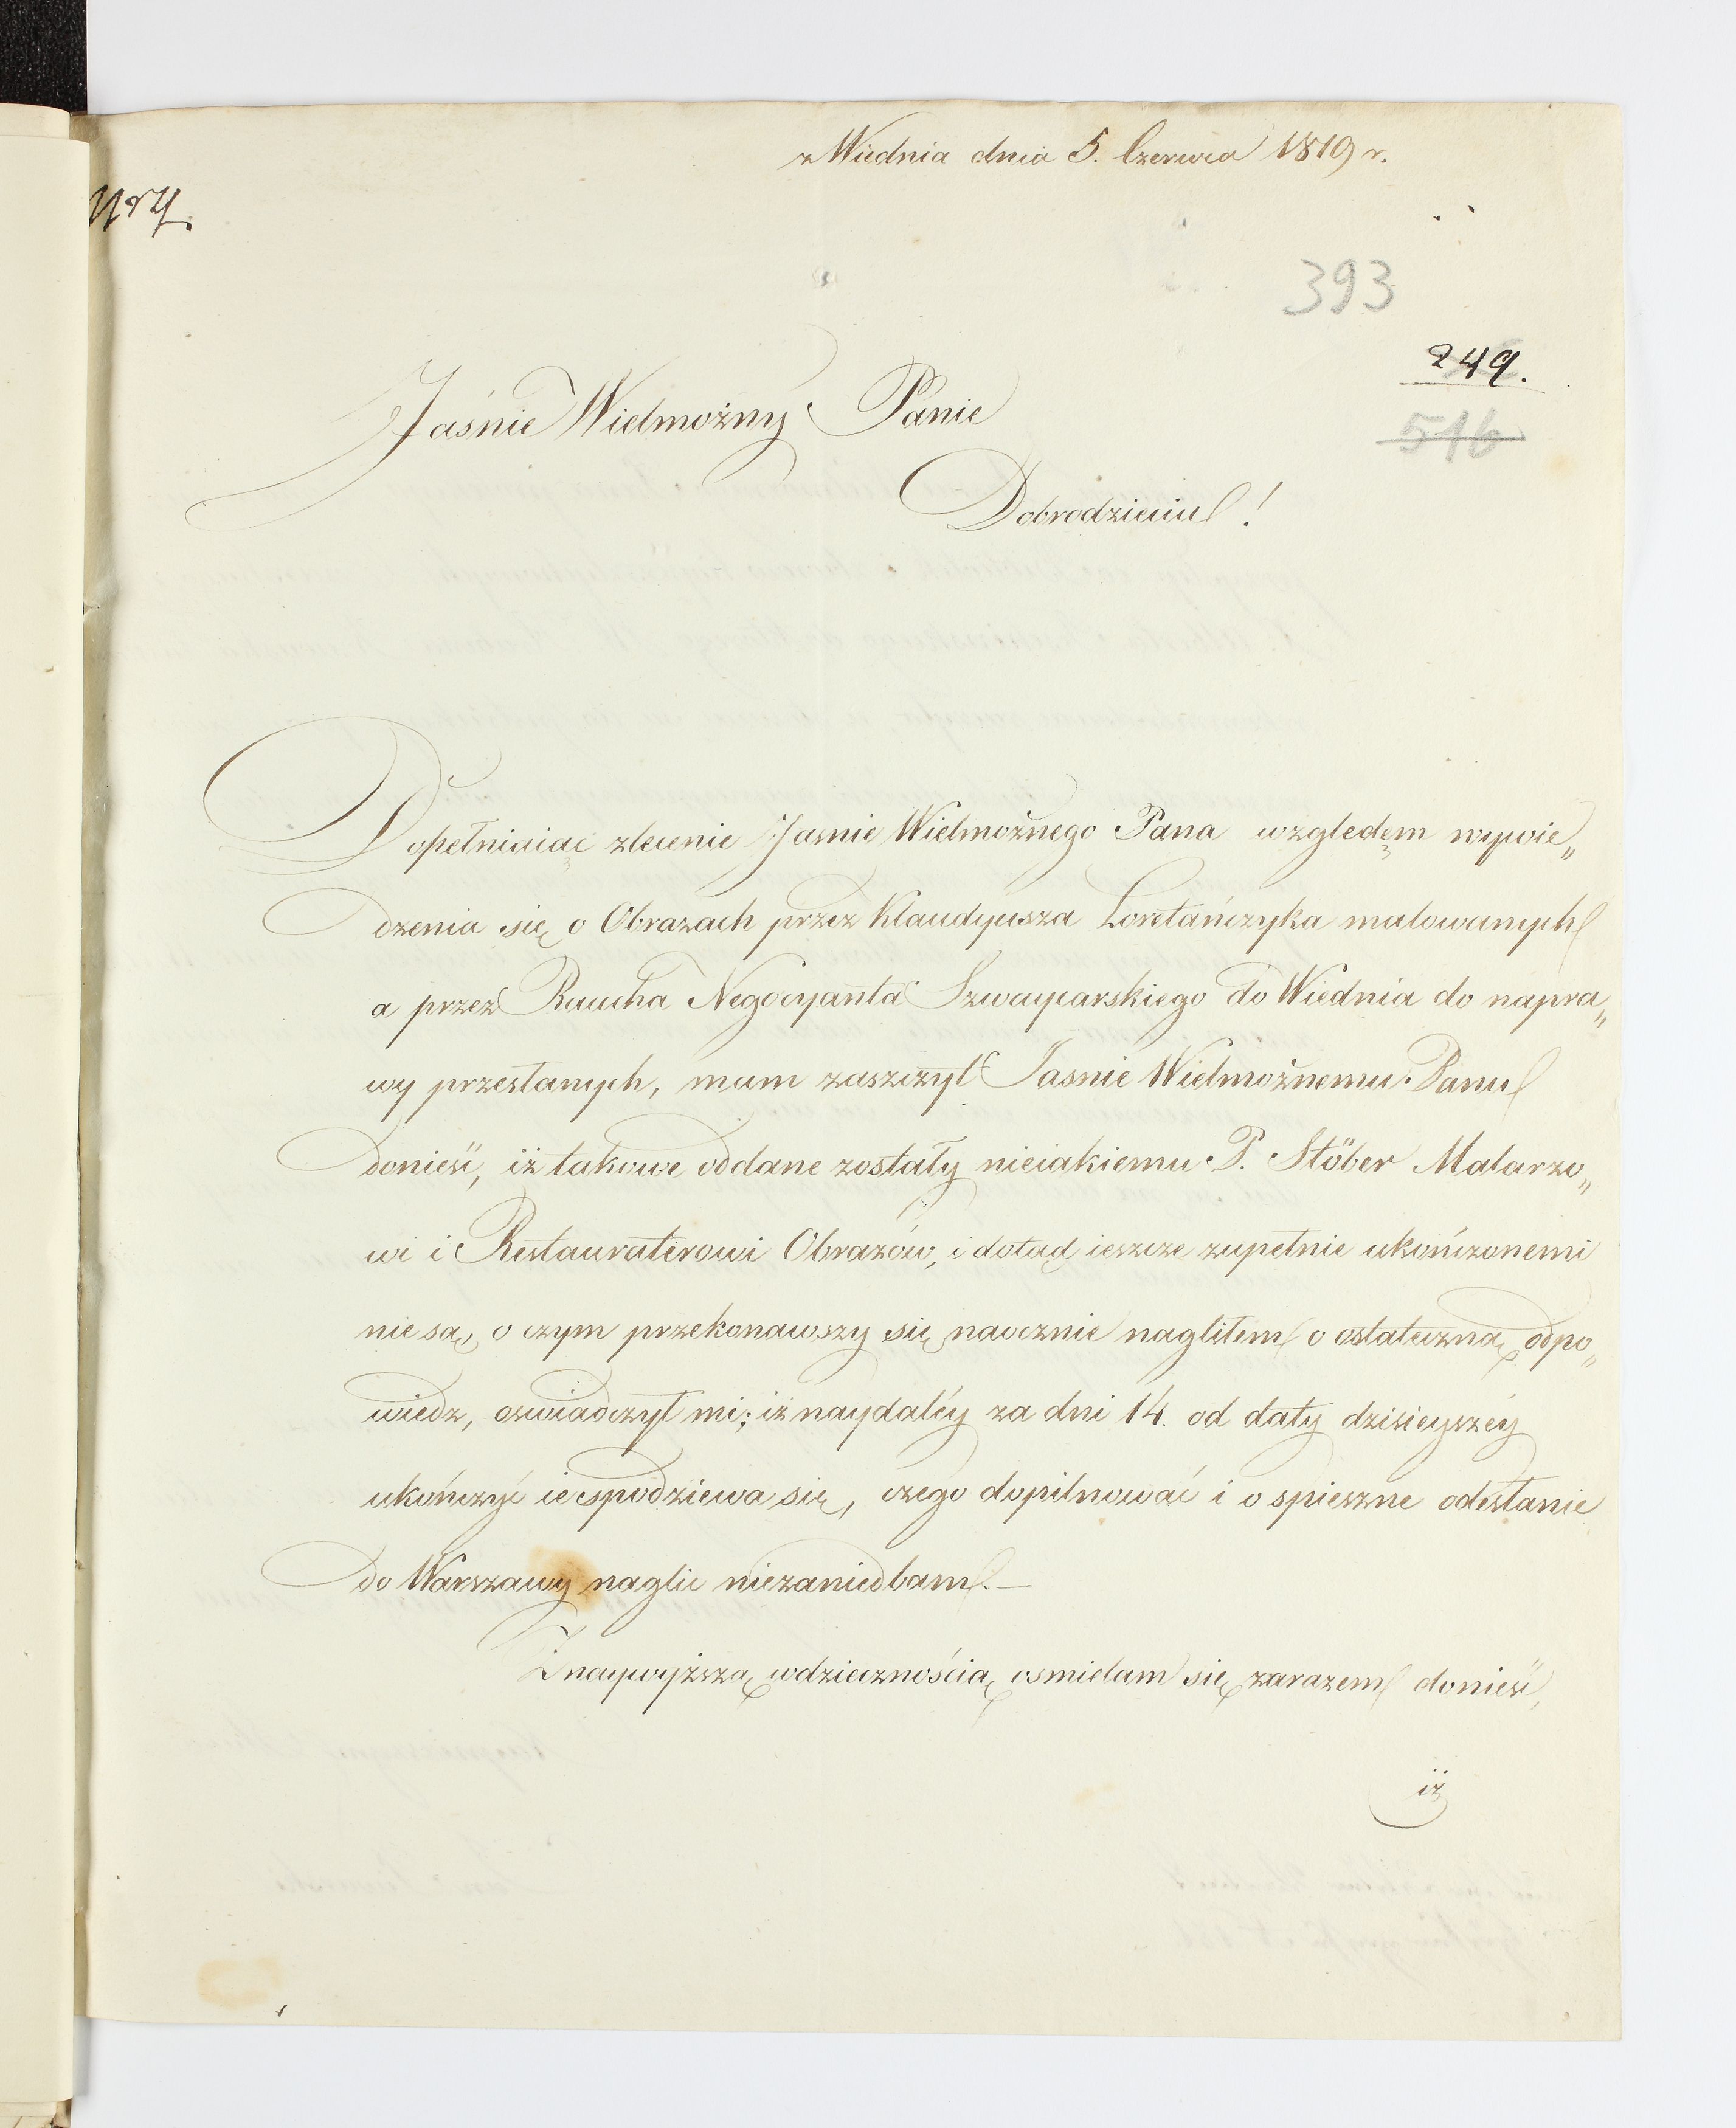 z Wiednia dnia 5. Czerwca 1819 r.
393
249.
516
Jaśnie Wielmożny Panie
Dobrodzieiu!
Dopełniaiąc zlecenie Jasnie Wielmożnego Pana względem wywie„
dzenia się o Obrazach przez Klaudyusza Loretańczyka malowanych
a przez Raucha Negocyanta Szwaycarskiego do Wiednia do napra„
wy przesłanych, mam zaszczyt Jasnie Wielmożnemu Panu
donieść, iż takowe oddane zostały nieiakiemu P. Stöber Malarzo„
wi i Restauraterowi Obrazów, i dotąd ieszcze zupełnie ukończonemi
nie są, o czym przekonawszy się naocznie nagliłem o ostateczną odpo„
wiedz, oswiadczył mi; iż naydaléy za dni 14. od daty dzisieyszéy
ukończyć ie spodziewa się, czego dopilnować i o spieszne odesłanie
do Warszawy naglic niezaniedbam. —
Z naywyższą wdziecznością osmielam się zarazem donieść,
iż